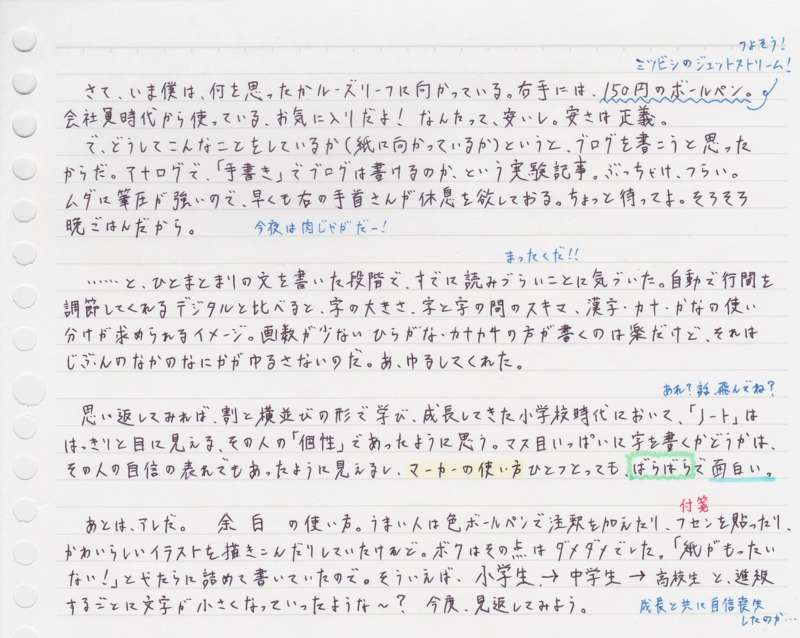 つよそう!
ミツビシのジェットストリーム!
さて、いま僕は、何を思ったかルーズリーフに向かっている。右手には、150円のボールペン。
会社員時代から使っている、お気に入りだよ! なんたって、安いし。安さは正義。
で、どうしてこんなことをしているか(紙に向かっているか)というと、ブログを書こうと思った
からだ。アナログで、「手書き」でブログは書けるのか、という実験記事。ぶっちゃけ、つらい。
ムダに筆圧が強いので、早くも右の手首さんが休息を欲しておる。ちょっと待ってよ。そろそろ
晩ごはんだから。
今夜は肉じゃがだー!
まったくだ!!
……と、ひとまとまりの文を書いた段階で、すでに読みづらいことに気づいた。自動で行間を
調節してくれるデジタルと比べると、字の大きさ、字と字の間のスキマ、漢字・カナ・かなの使い
分けが求められるイメージ。画数が少ないひらがな・カタカナの方が書くのは楽だけど、それは
じぶんのなかのなにかがゆるさないのだ。あ、ゆるしてくれた。
あれ?話、飛んでね?
思い返してみれば、割と横並びの形で学び、成長してきた小学校時代において、「ノート」は
はっきりと目に見える、その人の「個性」であったように思う。マス目いっぱいに字を書くかどうかは、
その人の自信の表れでもあったように見えるし、マーカーの使い方ひとつとっても、ばらばらで面白い。
付箋
あとは、アレだ。 余白 の使い方。うまい人は色ボールペンで注釈を加えたり、フセンを貼ったり、
かわいらしいイラストを描きこんだりしていたけれど。ボクはその点はダメダメでした。「紙がもったい
ない!」とやたらに詰めて書いていたので。そういえば、小学生→中学生→高校生と、進級
するごとに文字が小さくなっていったような〜? 今度、見返してみよう。
成長と共に自信喪失
したのか…